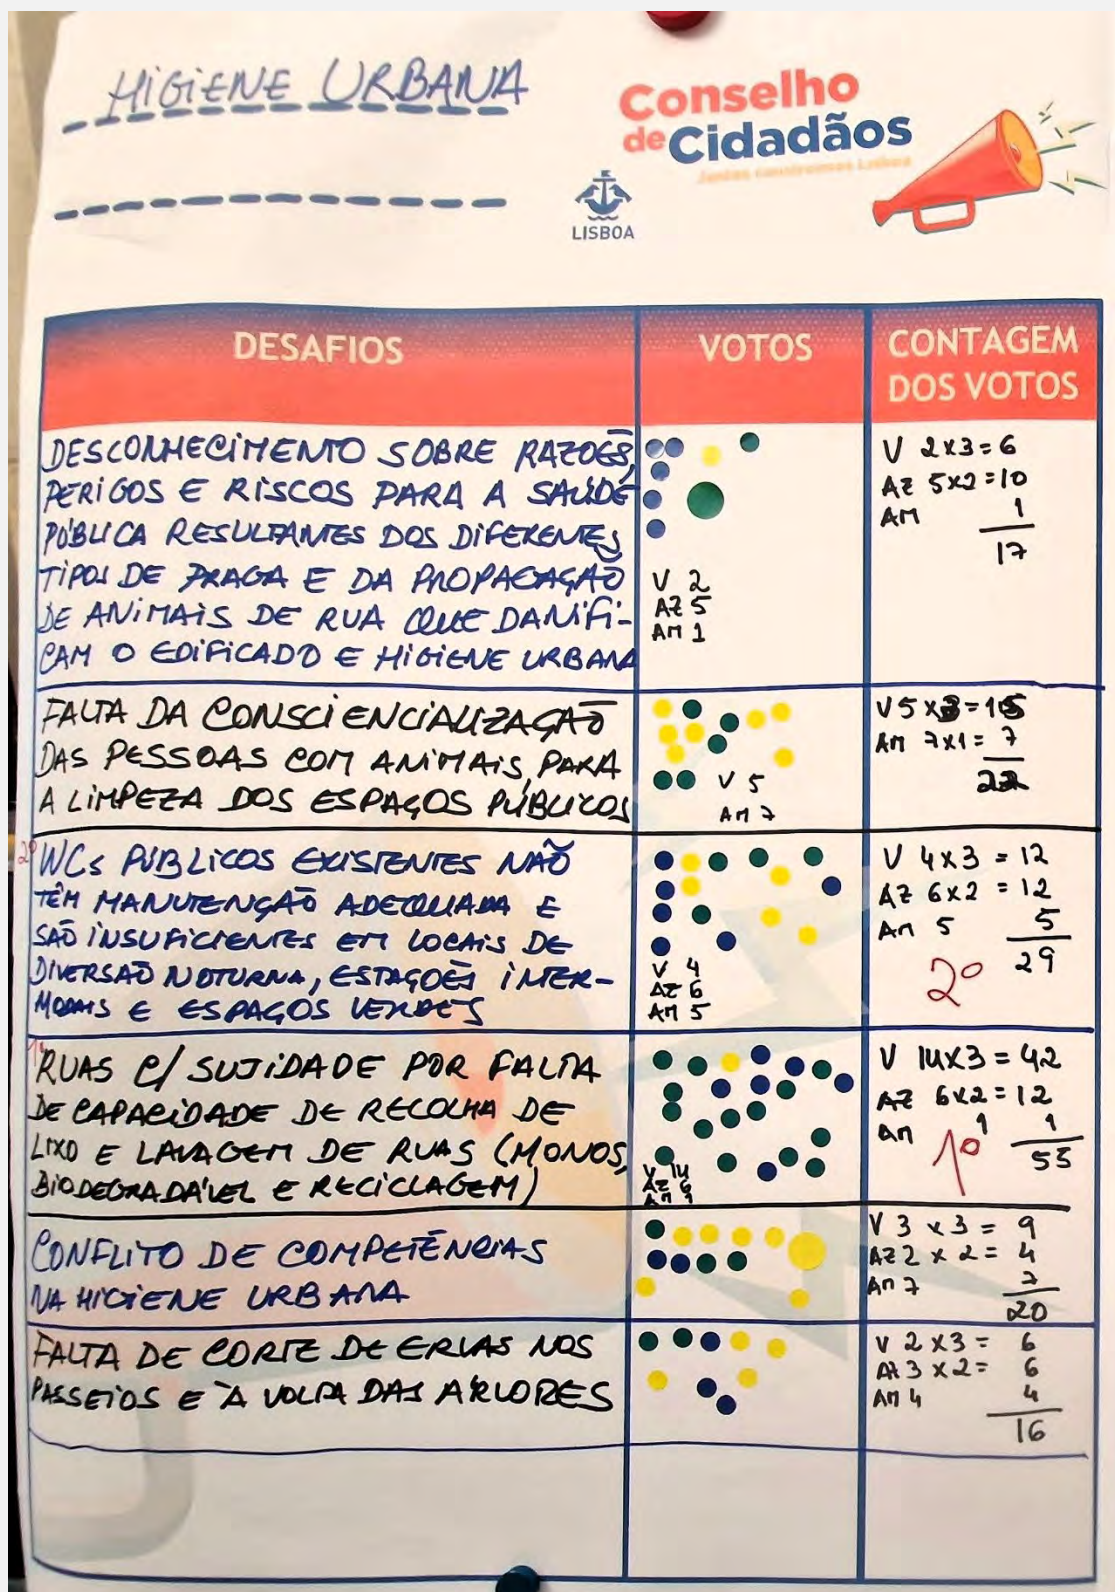 HIGIENE URBANA
Conselho
de Cidadãos
Juntos construímos Lisboa
LISBOA
DESAFIOS
VOTOS
CONTAGEM
DOS VOTOS
DESCONHECIMENTO SOBRE RAZOẼS,
PERIGOS E RISCOS PARA A SAÚDE
PÚBLICA RESULTANTES DOS DIFERENTES
TIPOS DE PRAGA E DA PROPAGAÇÃO
DE ANIMAIS DE RUA QUE DANIFI-
CAM O EDIFICADO E HIGIENE URBANA
V 2
AZ 5
AM 1
V 2x3=6
AZ 5x2=10
AM 1
17
FALTA DA CONSCIENCIALIZAÇÃO
DAS PESSOAS COM ANIMAIS, PARA
A LIMPEZA DOS ESPAÇOS PÚBLICOS
V 5
AM 7
V 5 x3=15
AM 7x1= 7
22
2º
WCs PÚBLICOS EXISTENTES NÃO
TÊM MANUTENÇÃO ADEQUADA E
SÃO INSUFICIENTES EM LOCAIS DE
DIVERSÃO NOTURNA, ESTAÇOẼS INTER-
MODAIS E ESPAÇOS VERDES
V 4
AZ 6
AM 5
V 4x3 = 12
AZ 6x2 = 12
AM 5 5
29
2º
1º
RUAS C/ SUJIDADE POR FALTA
DE CAPACIDADE DE RECOLHA DE
LIXO E LAVAGEM DE RUAS (MONOS,
BIODEGRADÁVEL E RECICLAGEM)
V 14
AZ 6
AM 1
V 14x3 = 42
AZ 6x2 = 12
AM 1 1
55
1º
CONFLITO DE COMPETÊNCIAS
NA HIGIENE URBANA
V 3 x 3 = 9
AZ 2 x 2 = 4
AM 7 7
20
FALTA DE CORTE DE ERVAS NOS
PASSEIOS E À VOLTA DAS ÁRVORES
V 2 x3 = 6
AZ 3 x2= 6
AM 4 4
16